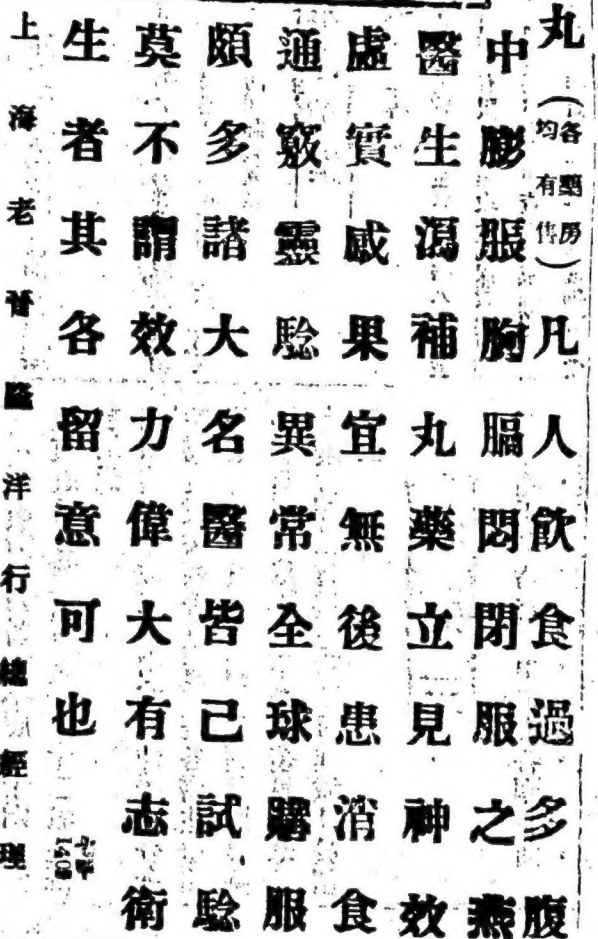 丸（各藥房均有售）凡人飲食過多腹
中膨脹胸膈悶閉服之燕
醫生瀉補丸藥立見神效
虛實咸果宜無後患消食
通竅靈驗異常全球購服
頗多諸大名醫皆已試驗
莫不謂效力偉大有志衛
生者其各留意可也
上海老晉隆洋行總經理